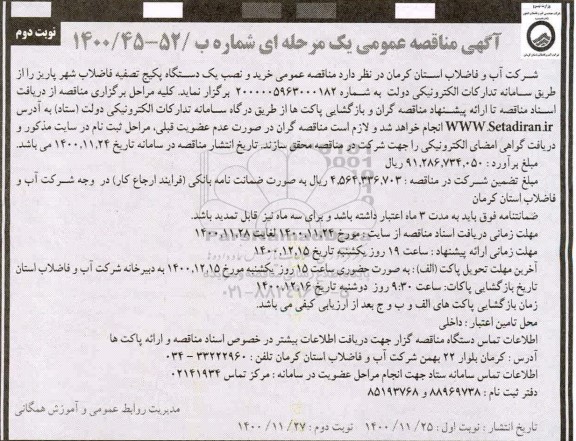 نوبت دوم
آگهی مناقصه عمومی یک مرحله ای شماره ب /۵۲-۴۵-۱۴۰۰
شرکت آب و فاضلاب استان کرمان در نظر دارد مناقصه عمومی خرید و نصب یک دستگاه پکیج تصفیه فاضلاب شهر پاریز را از
طریق سامانه تدارکات الکترونیکی دولت به شماره ۲۰۰۰۰۰۵۹۶۳۰۰۰۱۸۲ برگزار نماید. کلیه مراحل برگزاری مناقصه از دریافت
اسناد مناقصه تا ارائه پیشنهاد مناقصه گران و بازگشایی پاکت ها از طریق درگاه سامانه تدارکات الکترونیکی دولت (ستاد) به آدرس
WWW.Setadiran.ir انجام خواهد شد و لازم است مناقصه گران در صورت عدم عضویت قبلی، مراحل ثبت نام در سایت مذکور و
دریافت گواهی امضای الکترونیکی را جهت شرکت در مناقصه محقق سازند. تاریخ انتشار مناقصه در سامانه تاریخ ۱۴۰۰،۱۱،۲۴ می باشد.
مبلغ برآورد : ۹۱،۲۸۶،۷۳۴،۰۵۰ ریال
مبلغ تضمین شرکت در مناقصه : ۴،۵۶۴،۳۳۶،۷۰۳ ریال به صورت ضمانت نامه بانکی (فرایند ارجاع کار) در وجه شرکت آب و
فاضلاب استان کرمان
ضمانتنامه فوق باید به مدت ۳ ماه اعتبار داشته باشد و برای سه ماه نیز قابل تمدید باشد.
مهلت زمانی دریافت اسناد مناقصه از سایت: مورخ ۱۴۰۰،۱۱،۲۴ لغایت ۱۴۰۰،۱۱،۲۸
مهلت زمانی ارائه پیشنهاد : ساعت ۱۹ روز یکشنبه تاریخ ۱۴۰۰،۱۲،۱۵
آخرین مهلت تحویل پاکت (الف) : به صورت حضوری ساعت ۱۵ روز یکشنبه مورخ ۱۴۰۰،۱۲،۱۵ به دبیرخانه شرکت آب و فاضلاب استان
تاریخ بازگشایی پاکات: ساعت ۹:۳۰ روز دوشنبه تاریخ ۱۴۰۰،۱۲،۱۶
زمان بازگشایی پاکت های الف و ب و ج بعد از ارزیابی کیفی می باشد.
محل تامین اعتبار : داخلی
اطلاعات تماس دستگاه مناقصه گزار جهت دریافت اطلاعات بیشتر در خصوص اسناد مناقصه و ارائه پاکت ها
آدرس : کرمان بلوار ۲۲ بهمن شرکت آب و فاضلاب استان کرمان تلفن : ۳۳۲۲۲۹۶۰ - ۰۳۴
اطلاعات تماس سامانه ستاد جهت انجام مراحل عضویت در سامانه : مرکز تماس ۰۲۱۴۱۹۳۴
دفتر ثبت نام : ۸۸۹۶۹۷۳۸ و ۸۵۱۹۳۷۶۸
مدیریت روابط عمومی و آموزش همگانی
تاریخ انتشار : نوبت اول : ۲۵ / ۱۱ / ۱۴۰۰ نوبت دوم : ۲۷ / ۱۱ / ۱۴۰۰